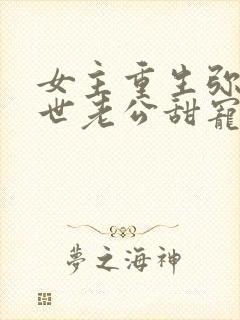 女主重生弥
世老公甜寵
夢之海神